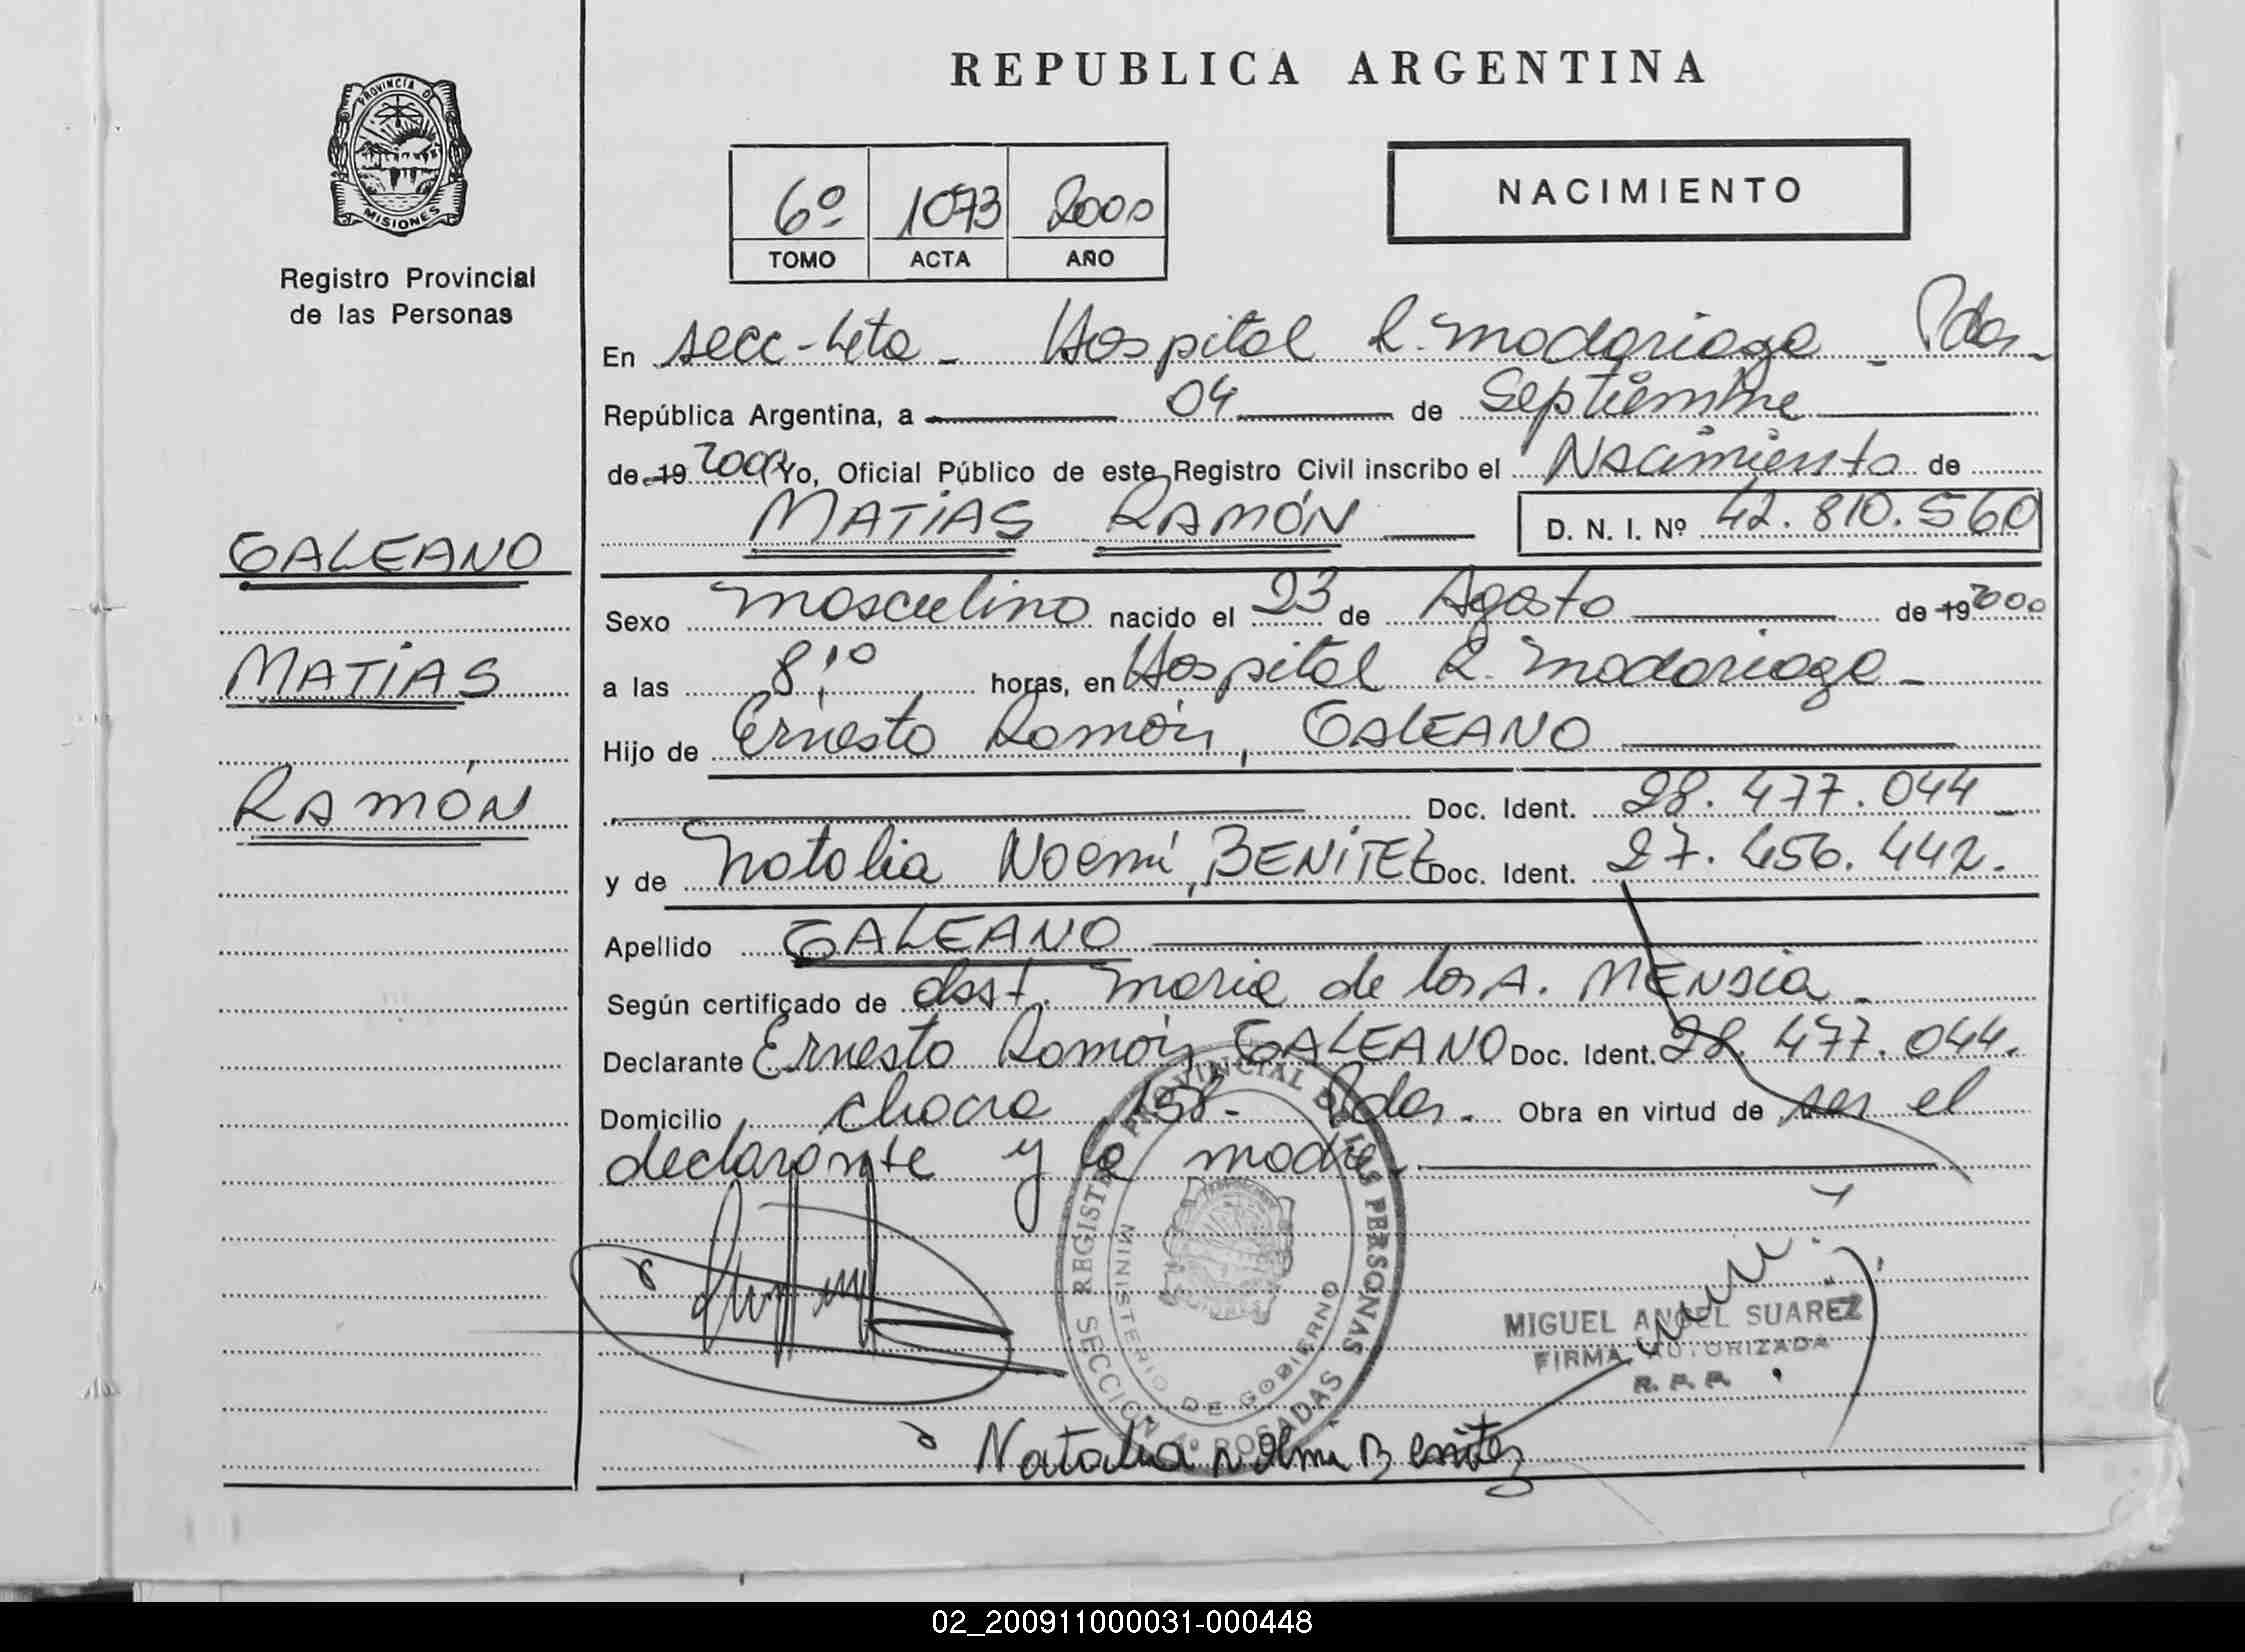 REPUBLICA ARGENTINA
PROVINCIA DE
MISIONES
Registro Provincial
de las Personas
6º 1073 2000
TOMO ACTA AÑO
NACIMIENTO
En secc-4ta - Hospital R. Madariaga - Pdas-
República Argentina, a 04 de Septiembre
de 19 2000 Yo, Oficial Público de este Registro Civil inscribo el Nacimiento de
MATIAS RAMÓN D. N. I. Nº 42.810.560
GALEANO
MATIAS
RAMÓN
Sexo masculino nacido el 23 de Agosto de 19 2000
a las 8,10 horas, en Hospital R. Madariaga -
Hijo de Ernesto Ramón, GALEANO
Doc. Ident. 28.477.044 -
y de Natalia Noemí, BENITEZ Doc. Ident. 27.456.442.
Apellido GALEANO
Según certificado de obst. Maria de los A. MENDIA -
Declarante Ernesto Ramón GALEANO Doc. Ident. 28.477.044.
Domicilio chacra 158- Pdas. Obra en virtud de ser el
declarante y la madre.
REGISTRO PROVINCIAL DE LAS PERSONAS
MINISTERIO DE GOBIERNO
SECCION 4º POSADAS
MIGUEL ANGEL SUAREZ
FIRMA AUTORIZADA
R. P. P.
Natalia Noemi Benitez
02_200911000031-000448